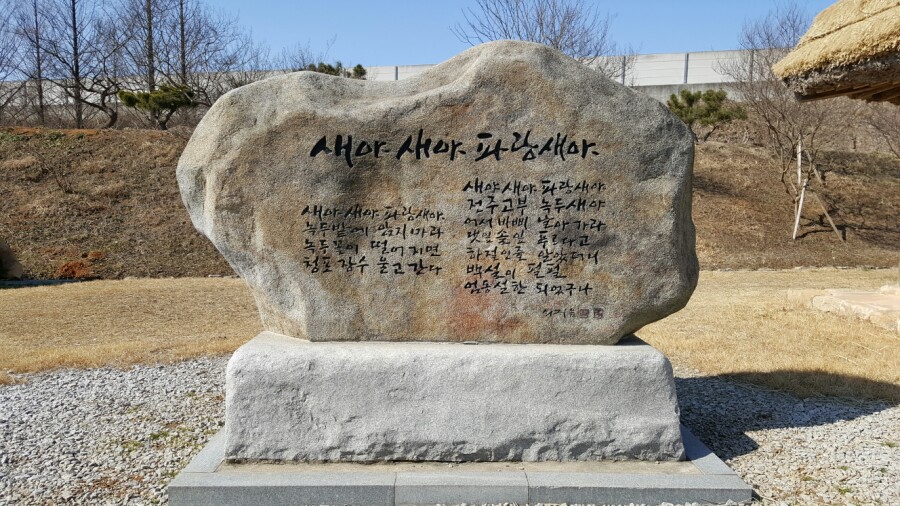 새야 새야 파랑새야
새야 새야 파랑새야
녹두밭에 앉지 마라
녹두꽃이 떨어지면
청포 장수 울고 간다
새야 새야 파랑새야
전주고부 녹두새야
어서 바삐 날아가라
댓잎 솔잎 푸르다고
하절인줄 알았더니
백설이 펄펄
엄동설한 되었구나